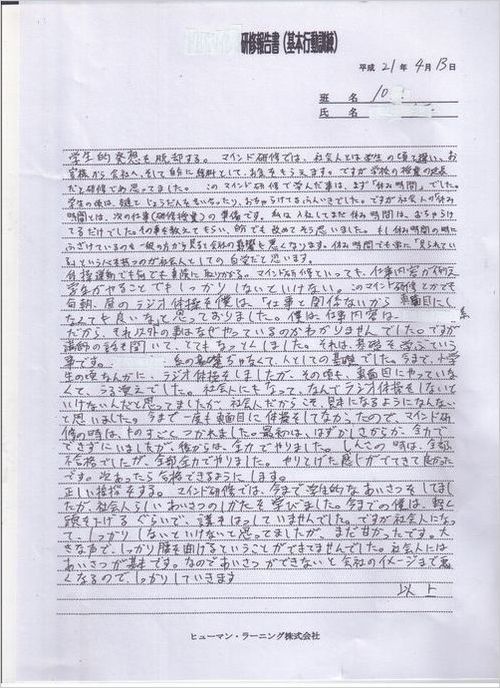 研修報告書(基本行動訓練)
平成 21 年 4 月 13 日
班 名 10
氏 名
学生的発想を脱却する。マインド研修では、社会人とは学生の頃と違い、お
客様から会社へ、そして自分に給料として、お金をもらえます。ですが学校の授業の延長
だと研修であ思ってました。このマインド研修で学んだ事は、まず「休み時間」でした。
学生の頃は、友達としょうだんを言いったり、おちゃらけてるふんいきでした。ですが社会人の休み
時間とは、次の仕事(研修授業)の準備です。私は入社してまだ休み時間は、おちゃらけ
てるだけでした。その事を教えてもらい、自分でも改めてそう思いました。もし休み時間の時に
ふざけているのを一般の方から見ると会社の影響も悪くなります。休み時間でも常に「見られてい
る」というくせを持つのが社会人としての自覚だと思います。
体操運動でも何でも真険に取りかかる。マインド研修といっても、仕事内容が例え
学生がやることでもしっかりしないといけない。このマインド研修とかでも
毎朝、昼のラジオ体操を僕は、「仕事と関係ないから真面目にし
なんても良いな」て思っておりました。僕は仕事内容は 系
だから、それ以外の事はなぜやっているのかわかりませんでした。ですが
講師の話を聞いて、とてもなっとくしました。それは、基礎を学ぶという
事です。 系の基礎ぢゃなくて、人としての基礎でした。今まで、小学
生の頃なんかに、ラジオ体操をしましたが、その頃も、真面目にやっていな
くて、うろ覚えでした。社会人にもなって、なんでラジオ体操をしないと
いけないんだと思ってましたが社会人だからこそ、見本になるようにならない
と思いました。今まで一度も真面目に体操をしてなかったので、マインド研
修の時は、ものすごくつかれました。最初は、はずかしさからか、全力で
できずにいましたが、後からは、全力でやりました。しんさの時は、全部
不合格でしたが、全部全力でやりました。やりとげた感じがでてきて良かった
です。次あったら合格できるようにします。
正しい挨拶をする。マインド研修では、今まで学生的なあいさつをしてまし
たが、社会人らしいあいさつのしかたを学びました。今までの僕は、軽く
頭を下げるぐらいで、声をはっしていませんでした。ですが社会人になっ
て、しっかりしないといけないと思ってましたが、まだ甘かったです。大
きな声で、しっかり腰を曲げるということができてませんでした。社会人には
あいさつが基本です。なのであいさつができないと会社のイメージまで悪
くなるので、しっかりしていきます
以上
ヒューマン・ラーニング株式会社